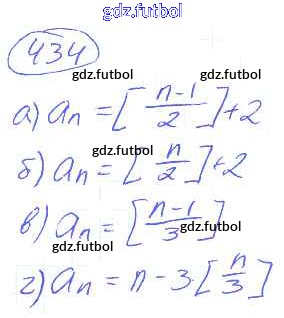 gdz.futbol
434
gdz.futbol
gdz.futbol
а) aₙ = [(n-1)/2] + 2
gdz.futbol
б) aₙ = [n/2] + 2
в) aₙ = [(n-1)/3]
gdz.futbol
gdz.futbol
г) aₙ = n - 3·[n/3]